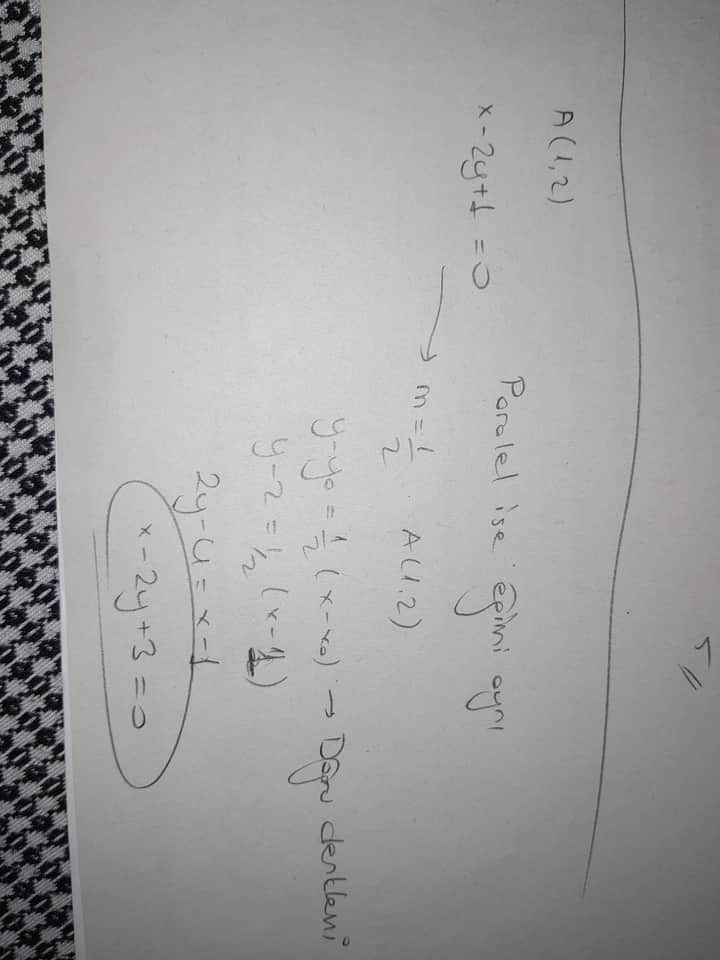 5
A(1,2)
x-2y+1=0 Paralel ise eğimi aynı
→ m=1/2 A(1,2)
y-y₀=1/2(x-x₀) → Doğru denklemi
y-2=1/2(x-1)
2y-4=x-1
x-2y+3=0